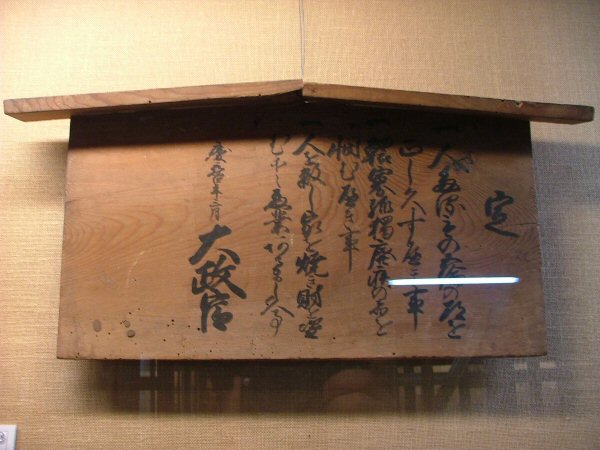 定
一人たるもの五倫の道を
正しくすへき事
一鰥寡孤獨癈疾のものを
憫むへき事
一人を殺し家を焼き財を盗
む等之悪業あるましく事
慶應四年三月
大政官